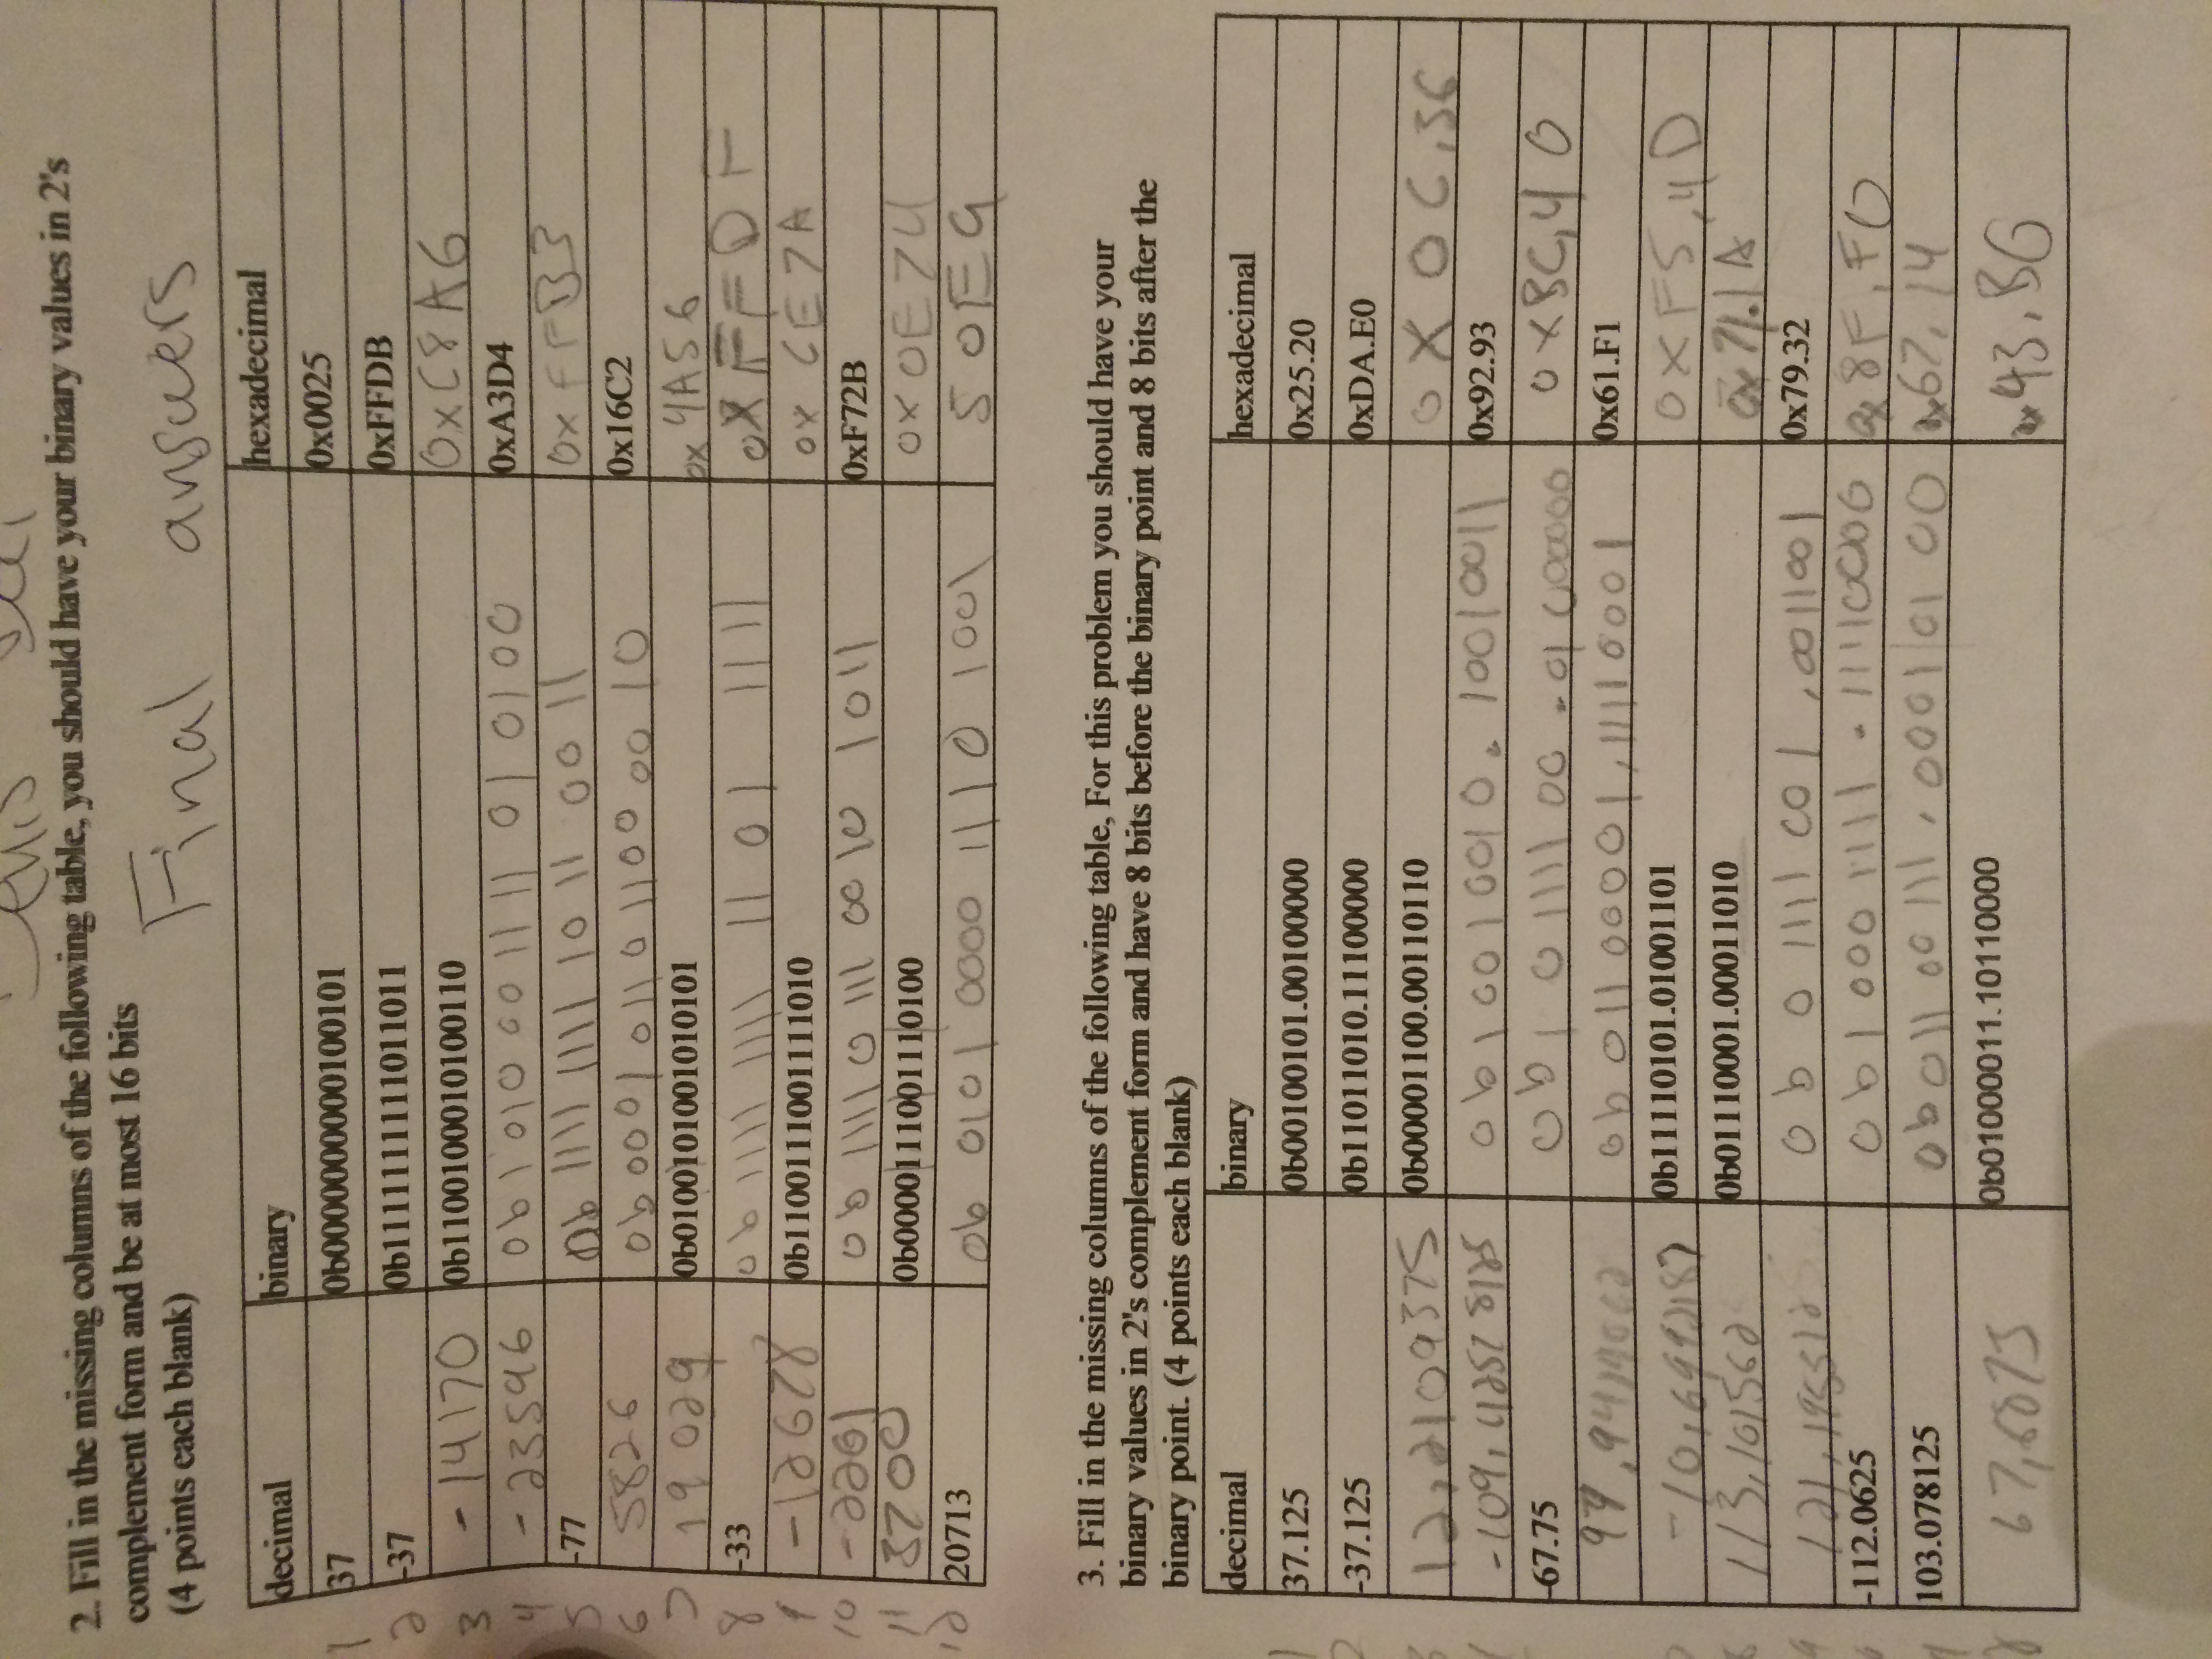 2. Fill in the missing columns of the following table, you should have your binary values in 2's
complement form and be at most 16 bits
(4 points each blank)
Final answers
decimal binary hexadecimal
1 37 0b0000000000100101 0x0025
2 -37 0b1111111111011011 0xFFDB
3 -14170 0b1100100010100110 0xC8A6
4 -23596 0b1010001111010100 0xA3D4
5 -77 0b 1111 1111 1011 0011 0xFFB3
6 5826 0b 0001 0110 1100 0010 0x16C2
7 19029 0b0100101001010101 0x 4A56
8 -33 0b 1111 1111 1101 1111 0xFFDF
9 -12678 0b1100111001111010 0x CE7A
10 -2261 0b 1111 0111 0010 1011 0xF72B
11 3700 0b0000111001110100 0x0E74
12 20713 0b 0101 0000 1110 1001 50E9
3. Fill in the missing columns of the following table, For this problem you should have your
binary values in 2's complement form and have 8 bits before the binary point and 8 bits after the
binary point. (4 points each blank)
decimal binary hexadecimal
37.125 0b00100101.00100000 0x25.20
-37.125 0b11011010.11100000 0xDA.E0
12.2109375 0b00001100.00110110 0X0C.36
-109.42578125 0b10010010.10010011 0x92.93
-67.75 0b10111100.01000000 0xBC.40
0b01100001.11110001 0x61.F1
-10.6992187 0b11110101.01001101 0XF5.4D
113.101562 0b01110001.00011010 0x71.1A
0b01111001.0011001 0x79.32
-112.0625 0b10001111.11110000 0x8F.F0
103.078125 0b01100111.00010100 0x67.14
67.6875 0b01000011.10110000 0x43.B0